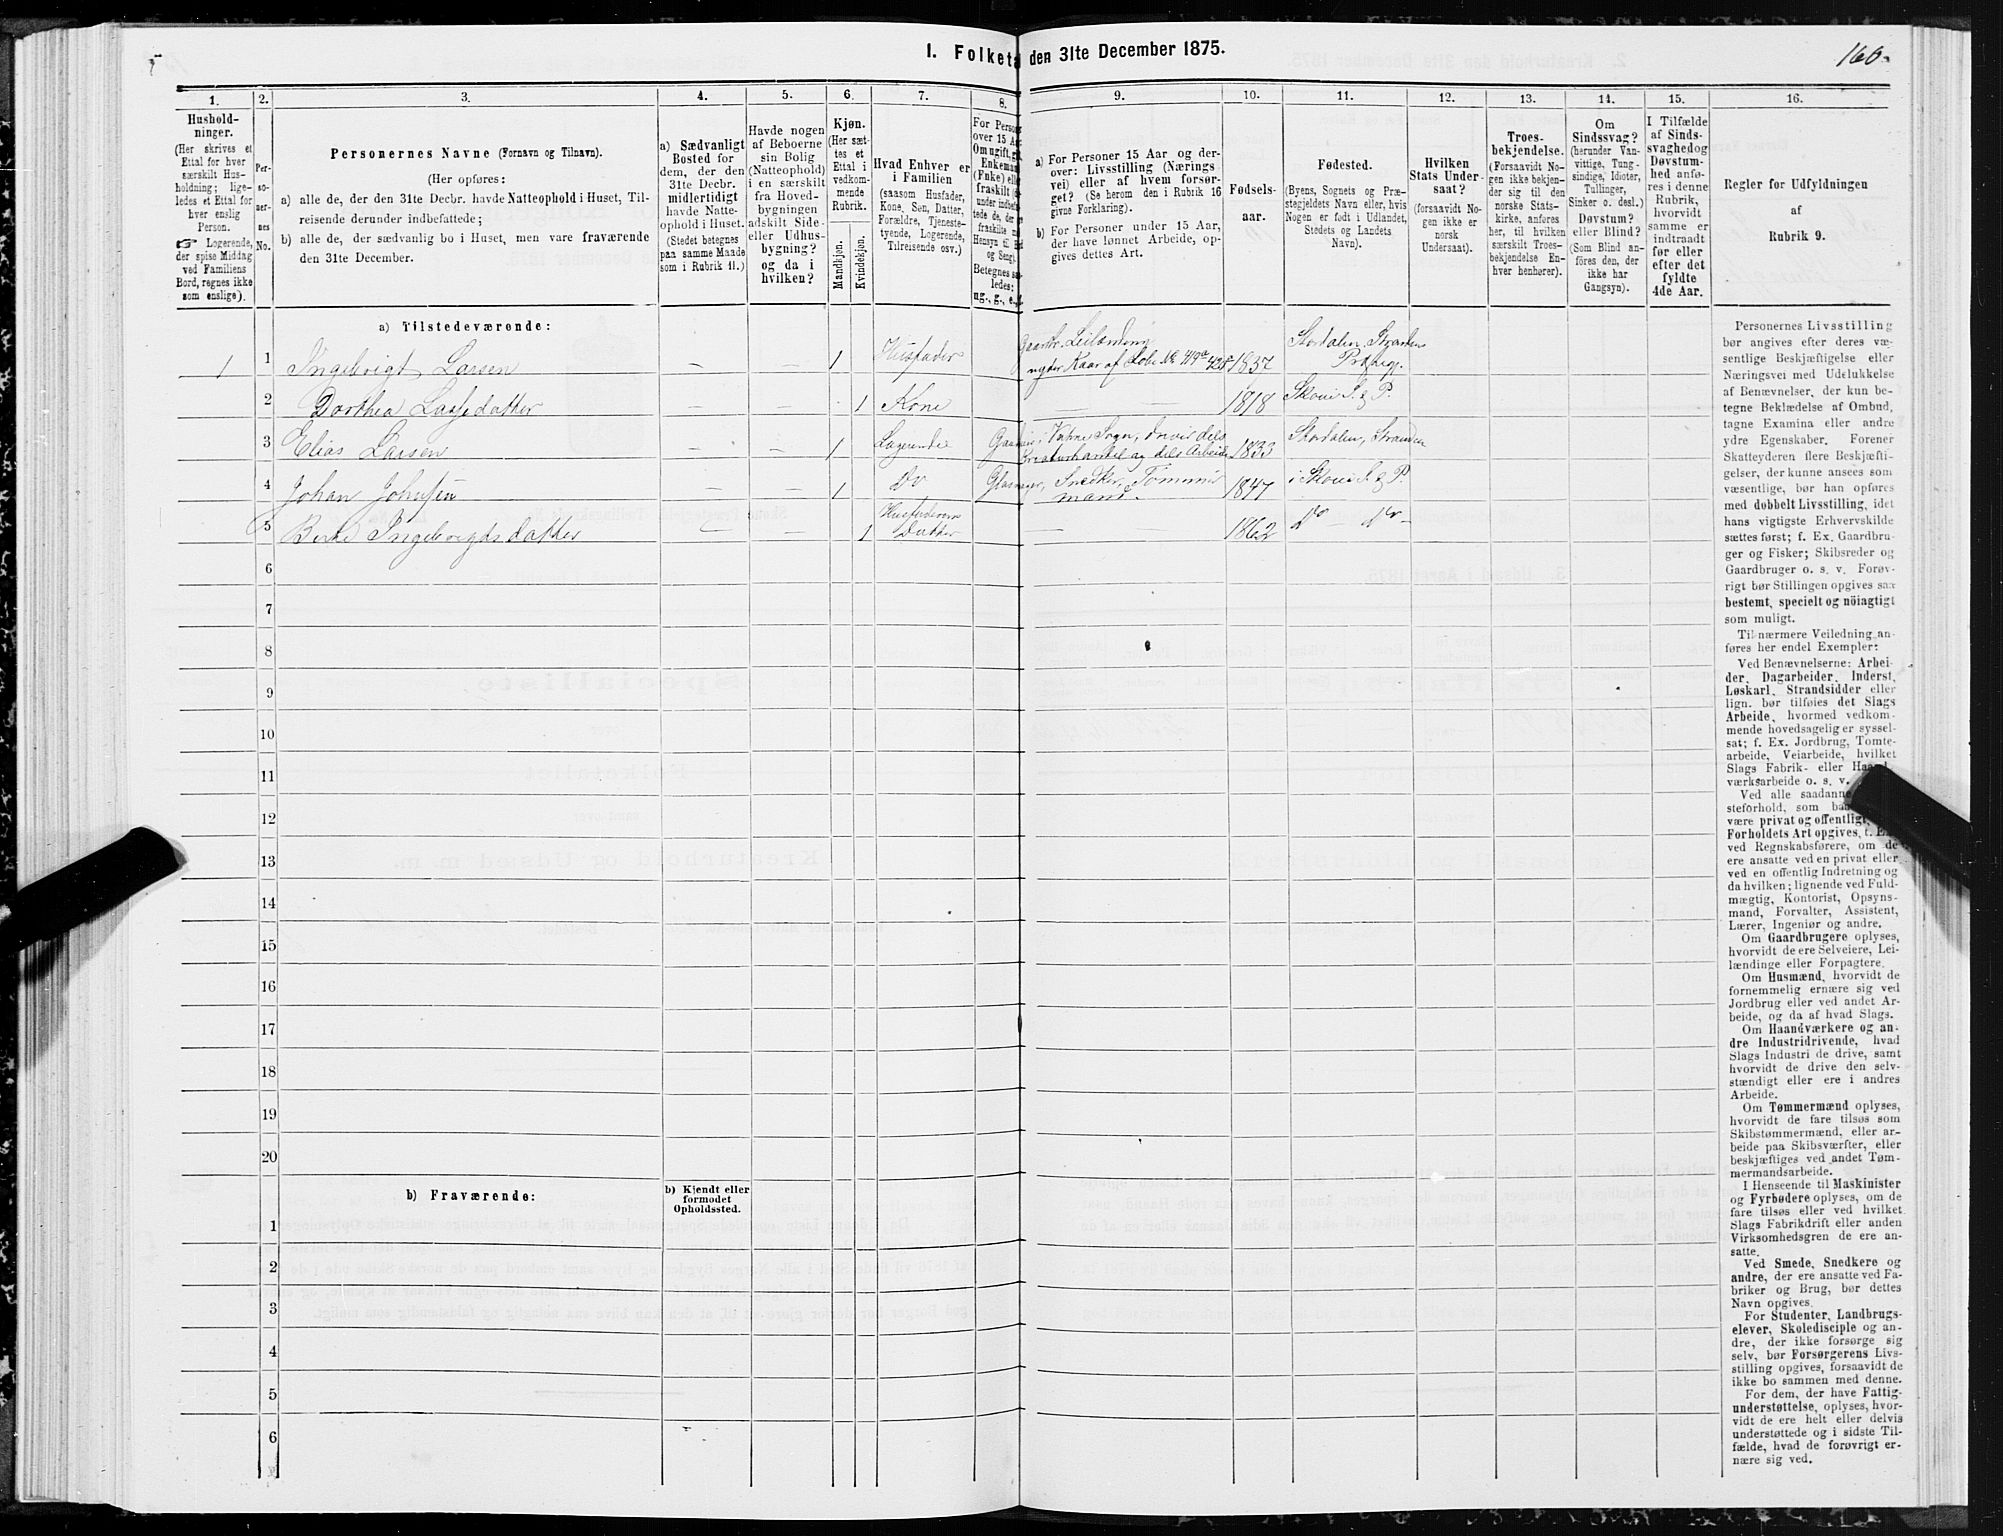 1. Folketa den 31te December 1875.
160.
1.
2.
3.
4.
5.
6.
7.
8.
9.
10.
11.
12.
13.
14.
15.
16.
Hushold-
ninger.
(Her skrives et
Ettal for hver
særskilt Hus-
holdning; lige-
ledes et Ettal for
hver enslig
Person.
☞ Logerende,
der spise Middag
ved Familiens
Bord, regnes ikke
som enslige).
Per-
so-
ner-
nes
No.
Personernes Navne (Fornavn og Tilnavn).
(Her opføres:
a) alle de, der den 31te Decbr. havde Natteophold i Huset, Til-
reisende derunder indbefattede;
b) alle de, der sædvanlig bo i Huset, men vare fraværende
den 31te December.
a) Sædvanligt
Bosted for
dem, der den
31te Decbr.
midlertidigt
havde Natte-
ophold i Huset.
(Stedet betegnes
paa samme Maade
som i Rubrik 11.)
Havde nogen
af Beboerne
sin Bolig
(Natteophold)
i en særskilt
fra Hoved-
bygningen
adskilt Side-
eller Udhus-
bygning?
og da i
hvilken?
Kjøn.
(Her sæt-
tes et
Ettal i
vedkom-
mende
Rubrik.
Mandkjøn.
Kvindekjøn.
Hvad Enhver er
i Familien
(saasom Husfader,
Kone, Søn, Datter,
Forældre, Tjeneste-
tyende, Logerende,
Tilreisende osv.)
For Perso
over 15 Aa
Om ugift, g
Enkeman
(Fnke) el
fraskilt
under indb
tede de, de
fraskilte
Hensyn til
og Seng).
Betegnes s
ledes:
ug., g., e., f.
a) For Personer 15 Aar og der-
over: Livsstilling (Nærings
vei) eller af hvem forsør-
get? (Se herom den i Rubrik 16
givne Forklaring).
b) For Personer under 15 Aar,
der have lønnet Arbeide, op-
gives dettes Art.
Fødsels-
aar.
Fødested.
(Byens, Sognets og Præ-
stegjeldets Navn eller, hvis
Nogen er født i Udlandet,
Stedets og Landets
Navn).
Hvilken
Stats Under-
saat?
(forsaavidt No-
gen ikke er
norsk
Undersaat).
Troes-
bekjendelse.
(Forsaavidt No-
gen ikke bekjen-
der sig til den
norske Stats-
kirke, anføres
her, til hvilken
særskilt Troes-
bekjendelse En-
hver henhører).
Om
Sindssvag?
(herunder Van-
vittige, Tung-
sindige, Idioter,
Tullinger,
Sinker o. desl.)
Døvstum?
eller Blind?
(Som Blind an-
føres den, der
ikke har
Gangsyn).
I Tilfælde
af Sinds-
svaghed og
Døvstum-
hed anfø-
res i denne
Rubrik,
hvorvidt
samme er
indtraadt
før eller
efter det
fyldte
4de Aar.
Regler for Udfyldningen
af
Rubrik 9.
a) Tilstedeværende:
1 1 Ingebrigt Larsen – – 1 Husfader Gaardbr. Leilænding
nyder Kaar af Løbe No 419a 1837 Stordalen, Stranden
Præstegj.
2 Dorthea Lassedatter – – 1 Kone – – 1818 Skoue S. & P.
3 Elias Larsen – – 1 Logerende i Vatne Sogn, driver dels
Kreaturhandel og dels Arbeide 1833 Stordalen, Stranden
4 Johan Johnsen – – 1 Do Snedker, Tømmer
mand. 1847 i Skoue S. & P.
5 Ingebrigtsdatter – – 1 Husfaderens
Datter – – 1862 Do – Do –
6
7
8
9
10
11
12
13
14
15
16
17
18
19
20
b) Fraværende:
b) Kjendt eller
formodet
Opholdssted.
1
2
3
4
5
6
Personernes Livsstilling
bør angives efter deres væ-
sentlige Beskjæftigelse eller
Næringsvei med Udelukkelse
af Benævnelser, der kun be-
tegne Beklædelse af Ombud,
tagne Examina eller andre
ydre Egenskaber. Forener
Skatteyderen flere Beskjæfti-
gelser, der kunne ansees som
væsentlige, bør han opføres
med dobbelt Livsstilling, idet
hans vigtigste Erhvervskilde
sættes først; f. Ex. Gaardbru-
ger og Fisker; Skibsreder og
Gaardbruger o. s. v. Forøv-
rigt bør Stillingen opgives saa
bestemt, specielt og nöiagtigt
som muligt.
Til nærmere Veiledning an-
føres her endel Exempler:
Ved Benævnelserne: Arbei-
der, Dagarbeider, Inderst,
Løskarl, Strandsidder eller
lign. bør tilføies det Slags
Arbeide, hvormed vedkom-
mende hovedsagelig er syssel-
sat; f. Ex. Jordbrug, Tomte-
arbeide, Veiarbeide, hvilket
Slags Fabrik- eller Haand-
værksarbeide o. s. v.
Ved alle saadanne
steforhold, som baa
være privat og offentligt,
Forholdets Art opgives, f. Ex.
ved Regnskabsførere, om de
ere ansatte ved en privat eller
ved en offentlig Indretning og
da hvilken; lignende ved Fuld-
mægtig, Kontorist, Opsyns-
mand, Forvalter, Assistent,
Lærer, Ingeniør og andre.
Om Gaardbrugere oplyses,
hvorvidt de ere Selveiere, Lei-
lændinge eller Forpagtere.
Om Husmænd, hvorvidt de
fornemmelig ernære sig ved
Jordbrug eller ved andet Ar-
beide, og da af hvad Slags.
Om Haandværkere og an-
dre Industridrivende, hvad
Slags Industri de drive, samt
hvorvidt de drive den selv-
stændigt eller ere i andres
Arbeide.
Om Tømmermænd oplyses,
hvorvidt de fare tilsøs som
Skibstømmermænd, eller ar-
beide paa Skibsværfter, eller
beskjæftiges ved andet Tøm-
mermandsarbeide.
I Henseende til Maskinister
og Fyrbødere oplyses, om de
fare tilsøs eller ved hvilket
Slags Fabrikdrift eller anden
Virksomhedsgren de ere an-
satte.
Ved Smede, Snedkere og
andre, der ere ansatte ved Fa-
briker og Brug, bør dettes
Navn opgives.
For Studenter, Landbrugs-
elever, Skoledisciple og an-
dre, der ikke forsørge sig
selv, bør Forsørgerens Livs-
stilling opgives, forsaavidt de
ikke bo sammen med denne.
For dem, der have Fattig-
understøttelse, oplyses, hvor-
vidt de ere helt eller delvis
understøttede og i sidste Til-
fælde, hvad de forøvrigt er-
nære sig ved.